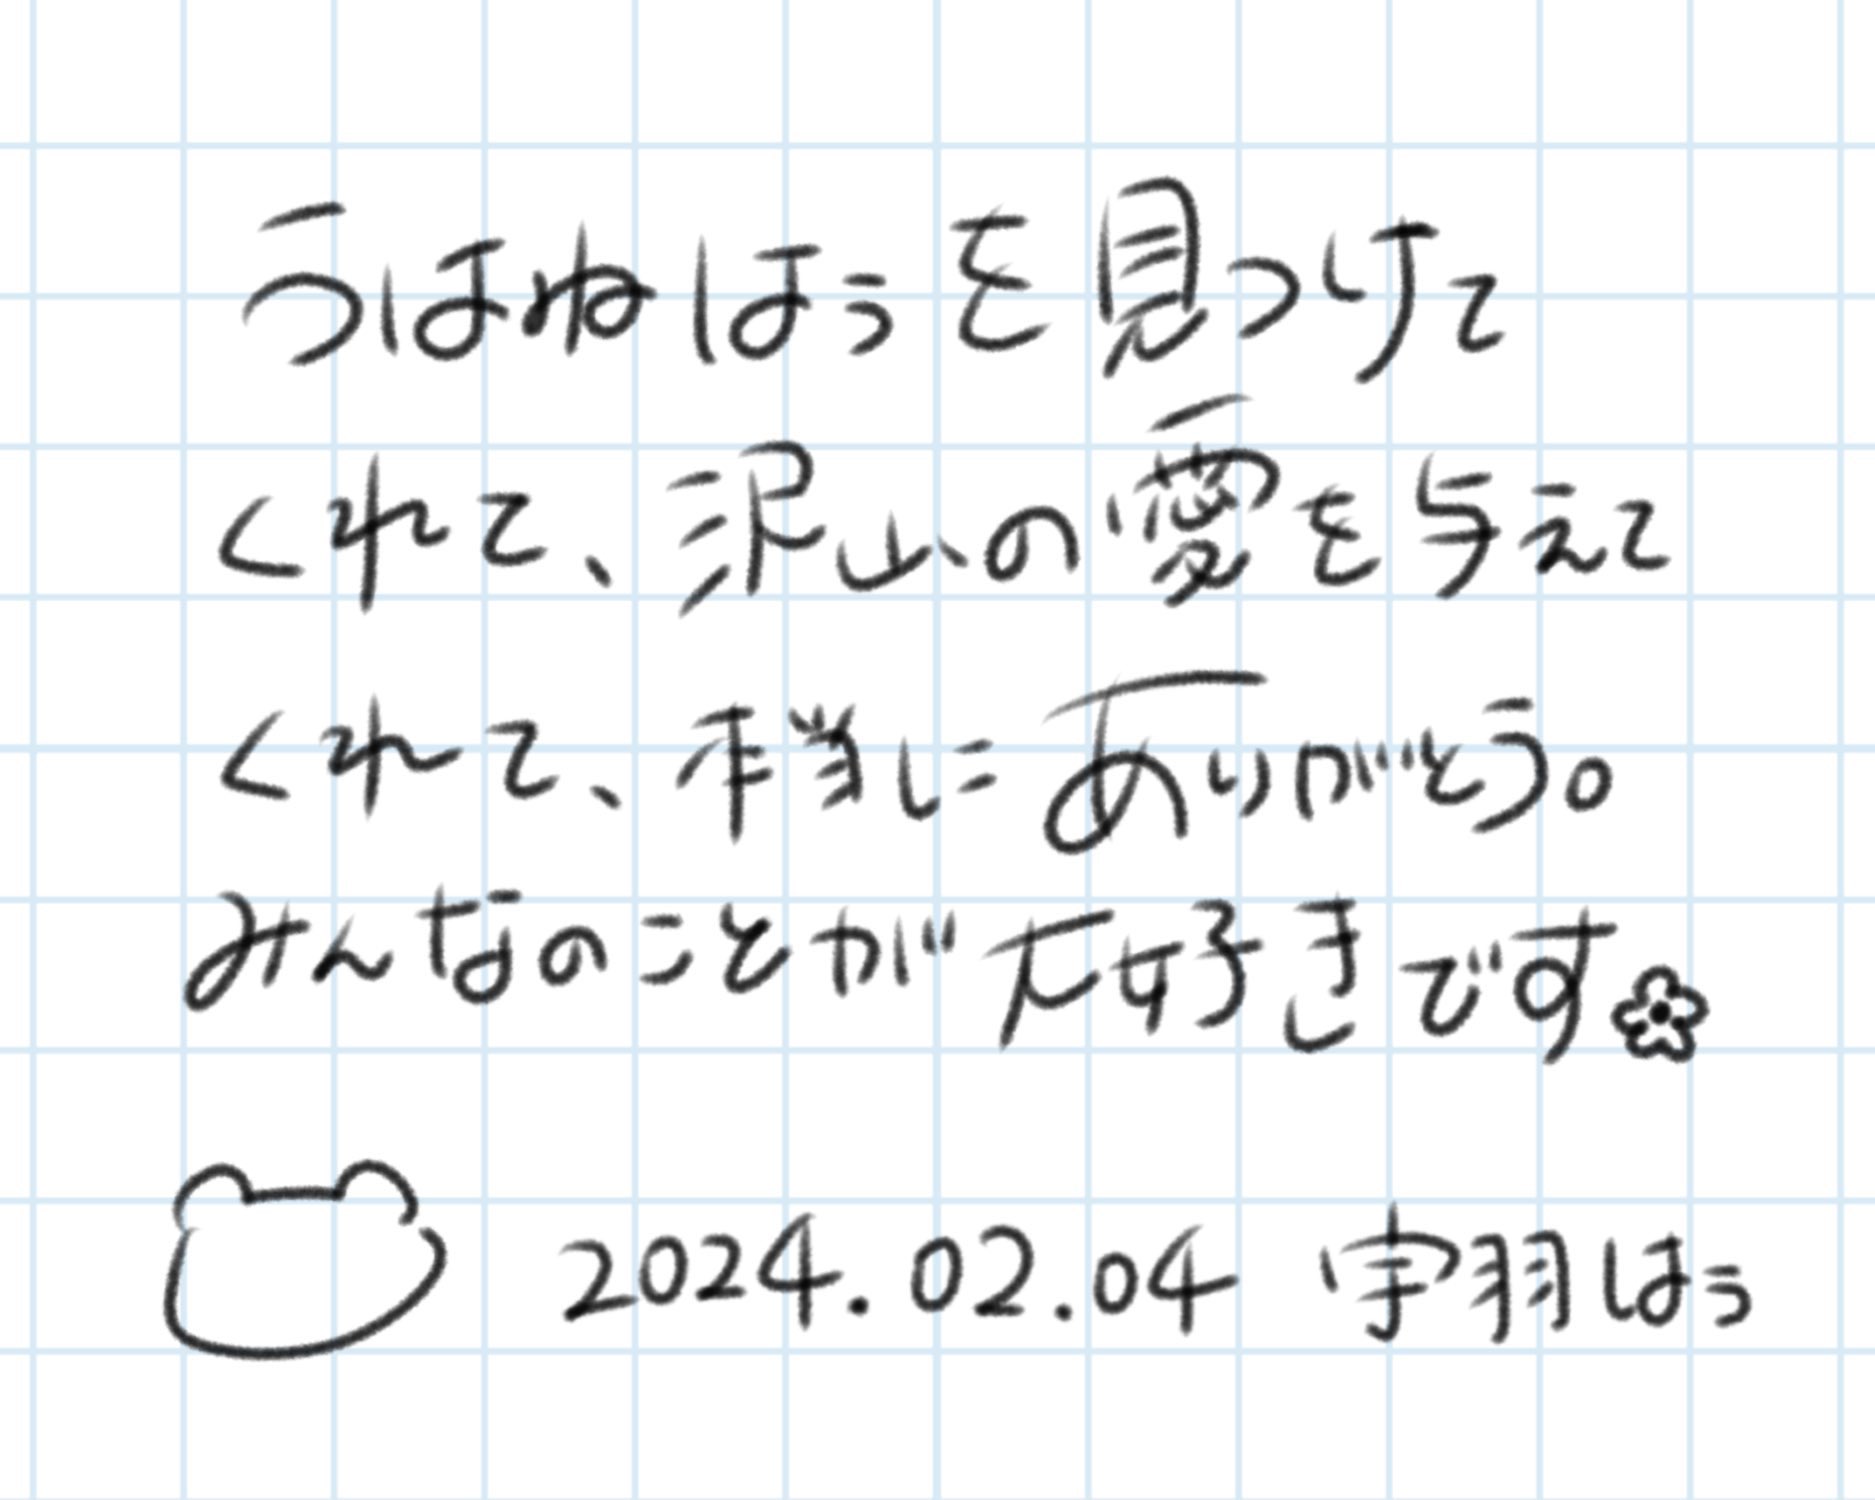 うはねはぅを見つけて
くれて、沢山の愛を与えて
くれて、本当にありがとう。
みんなのことが大好きです
2024.02.04 宇羽はぅ